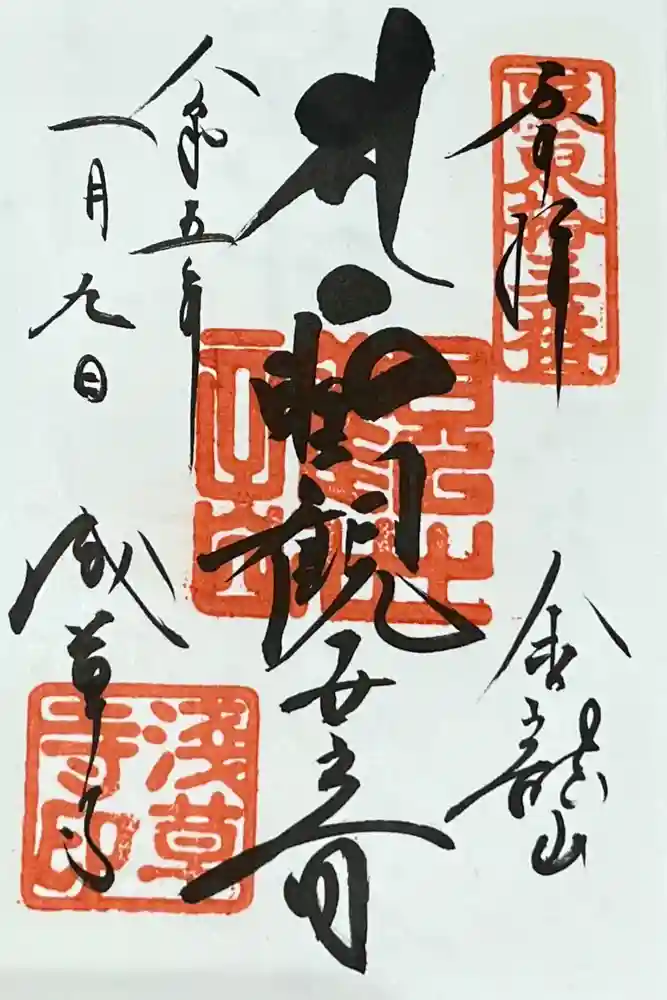 坂東拾三番
奉拝
金龍山
聖観世音
令和五年
一月九日
浅草寺
浅草寺印